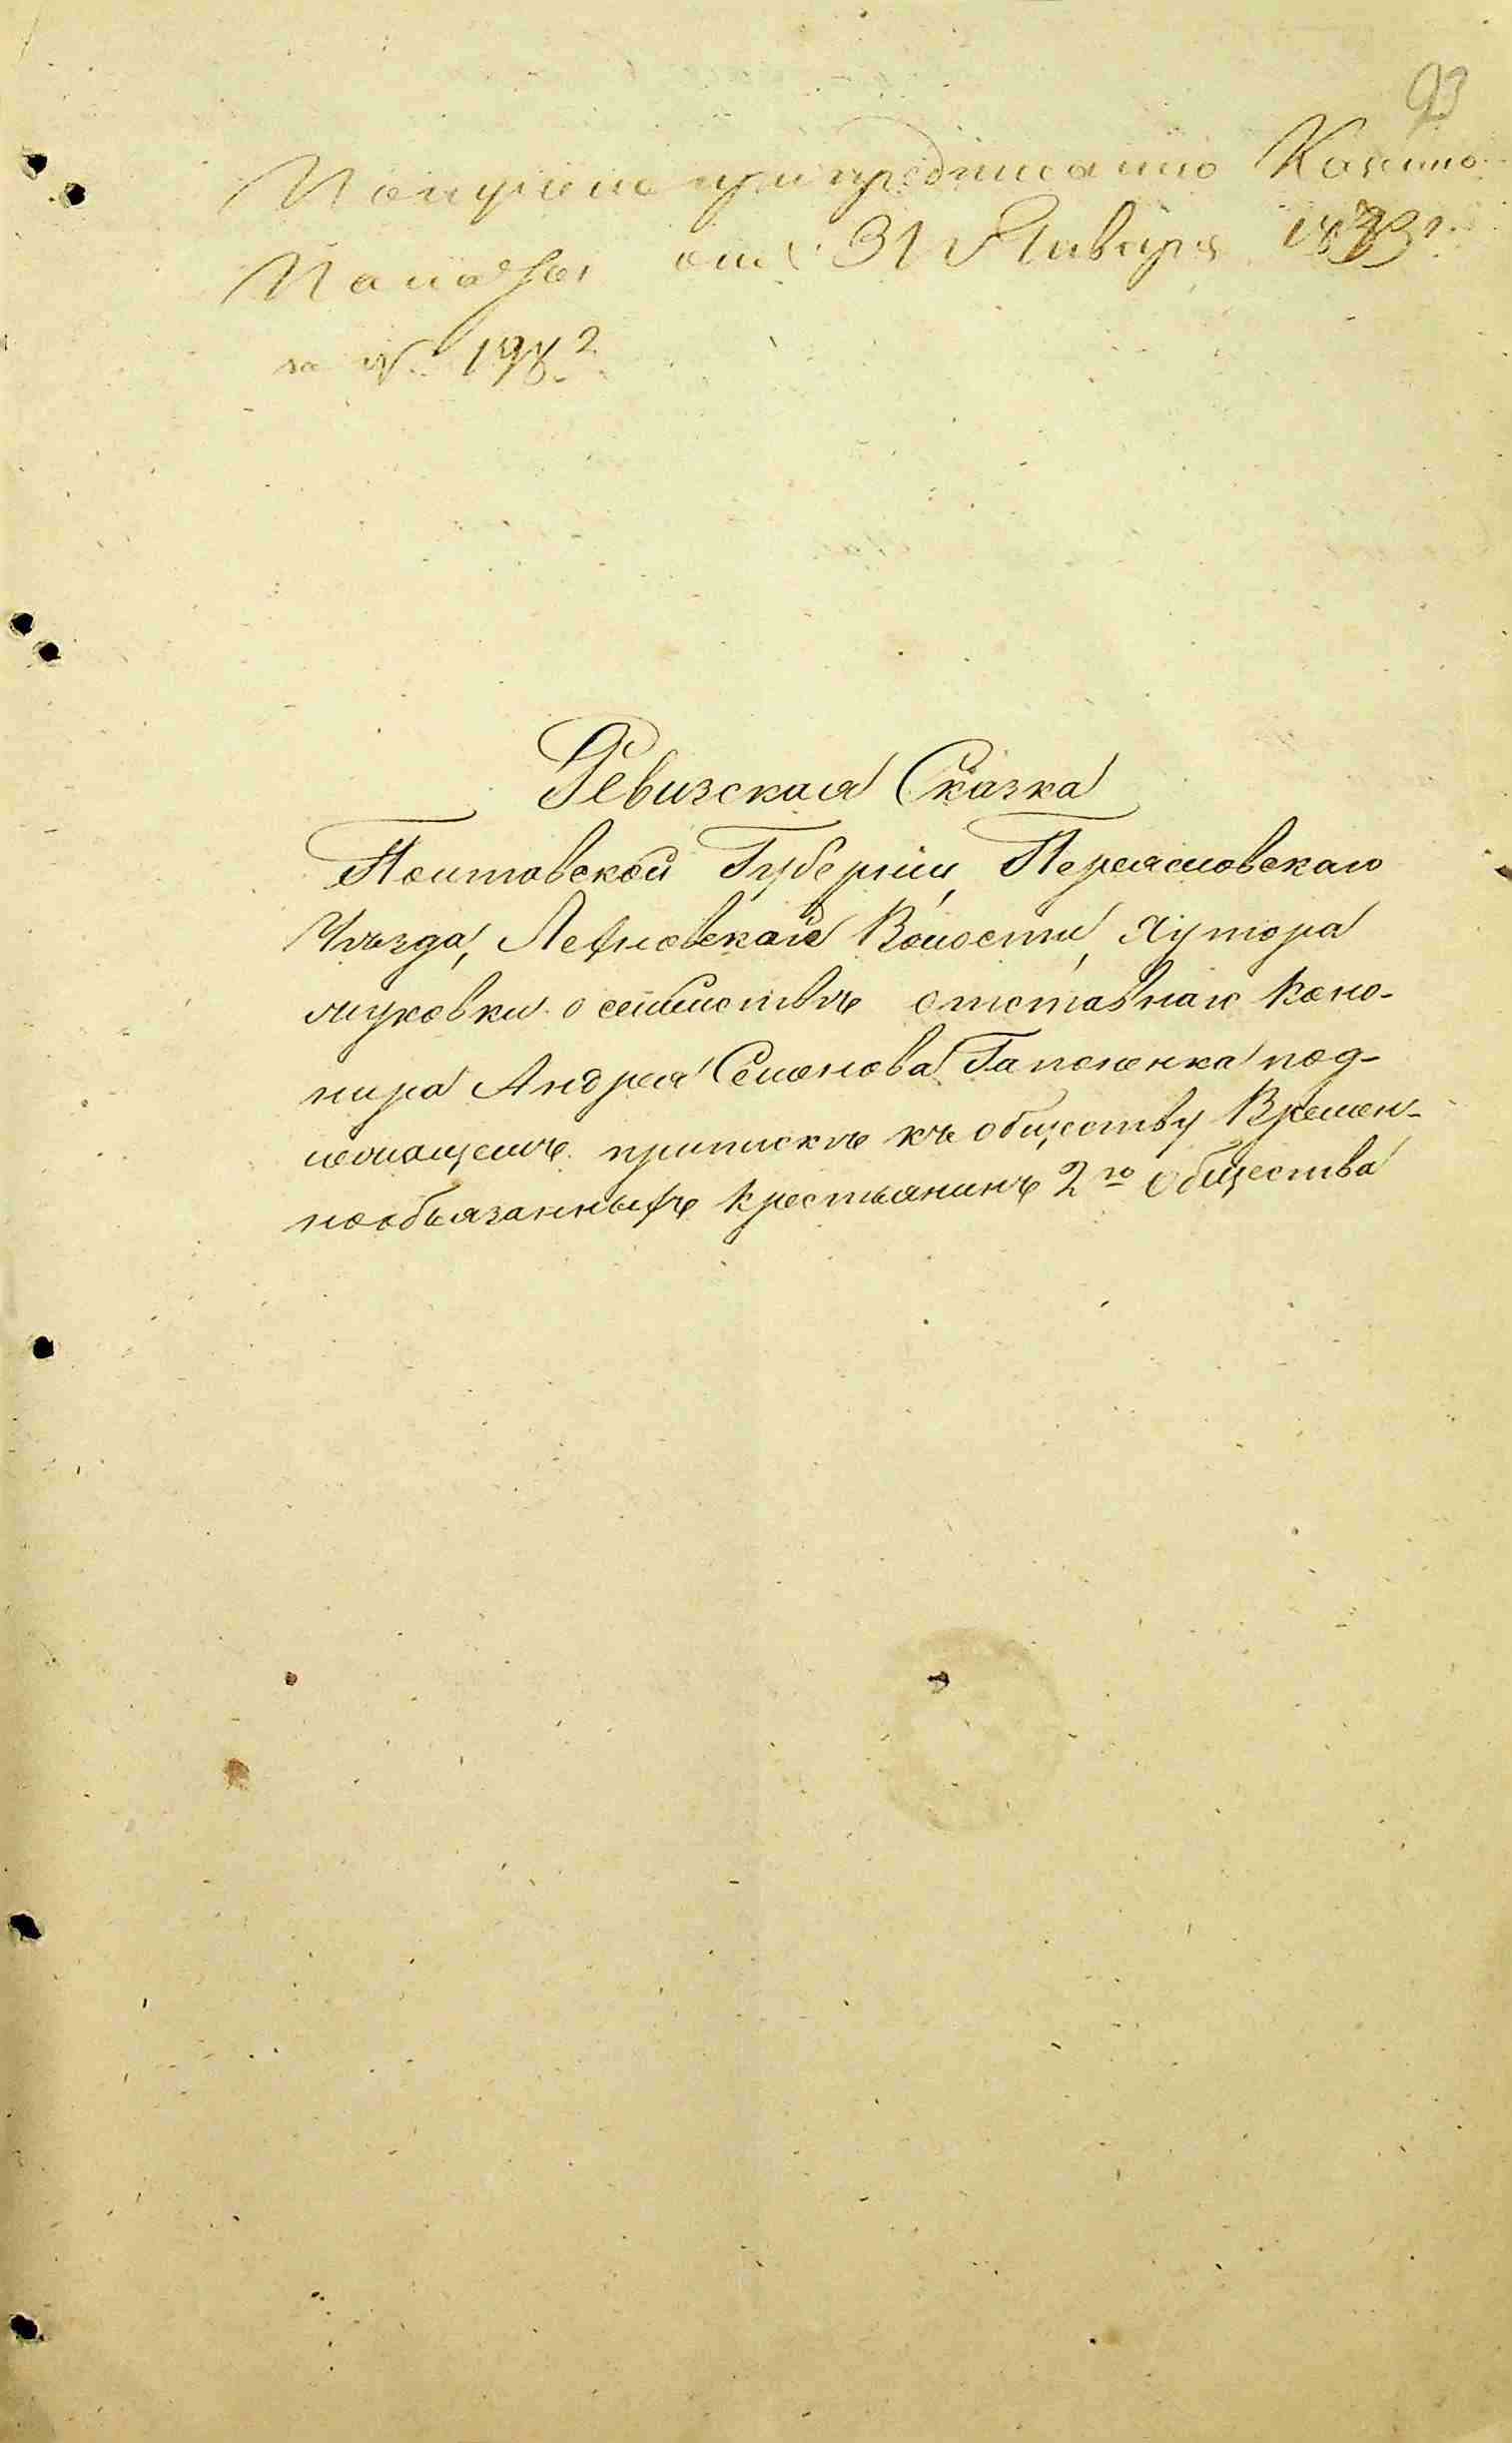 93
при предписанию Казенно
Палаты отъ 31 Января 1873 г.
за №
Ревизская Сказка
Полтавской Губерніи, Переясловскаго
Уѣзда, Волости, Хутора
о семействѣ отставнаго Коно-
нира Андрея Семенова Гапоненка под-
лежащемъ припискѣ къ обществу Времен-
нообязанныхъ крестьянинъ 2го общества